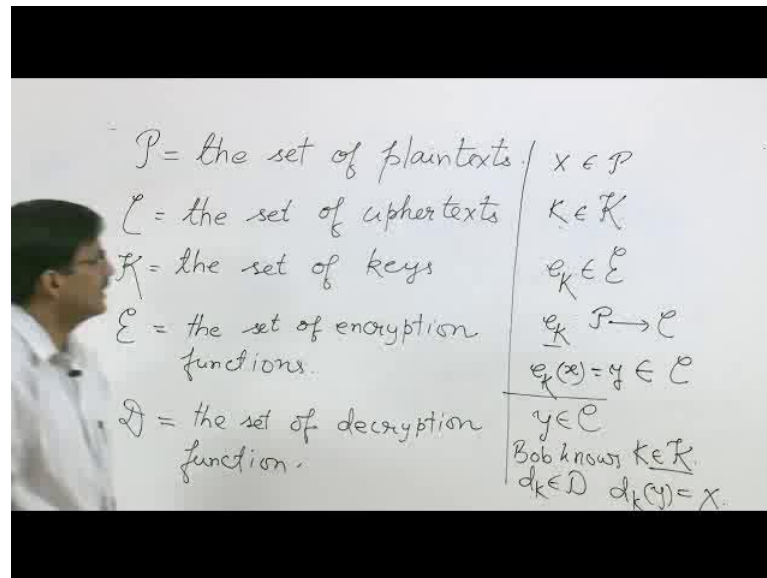 𝒫 = the set of plaintexts.
𝒞 = the set of ciphertexts
𝒦 = the set of keys
ℰ = the set of encryption
functions.
𝒟 = the set of decryption
function.
x ∈ 𝒫
K ∈ 𝒦
e_K ∈ ℰ
e_K 𝒫 → 𝒞
e_K(x) = y ∈ 𝒞
y ∈ 𝒞
Bob knows K ∈ 𝒦.
d_K ∈ 𝒟 d_K(y) = x.